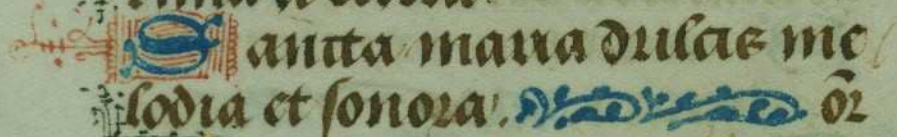 Sancta maria dulcis me
lodia et sonora. or̄